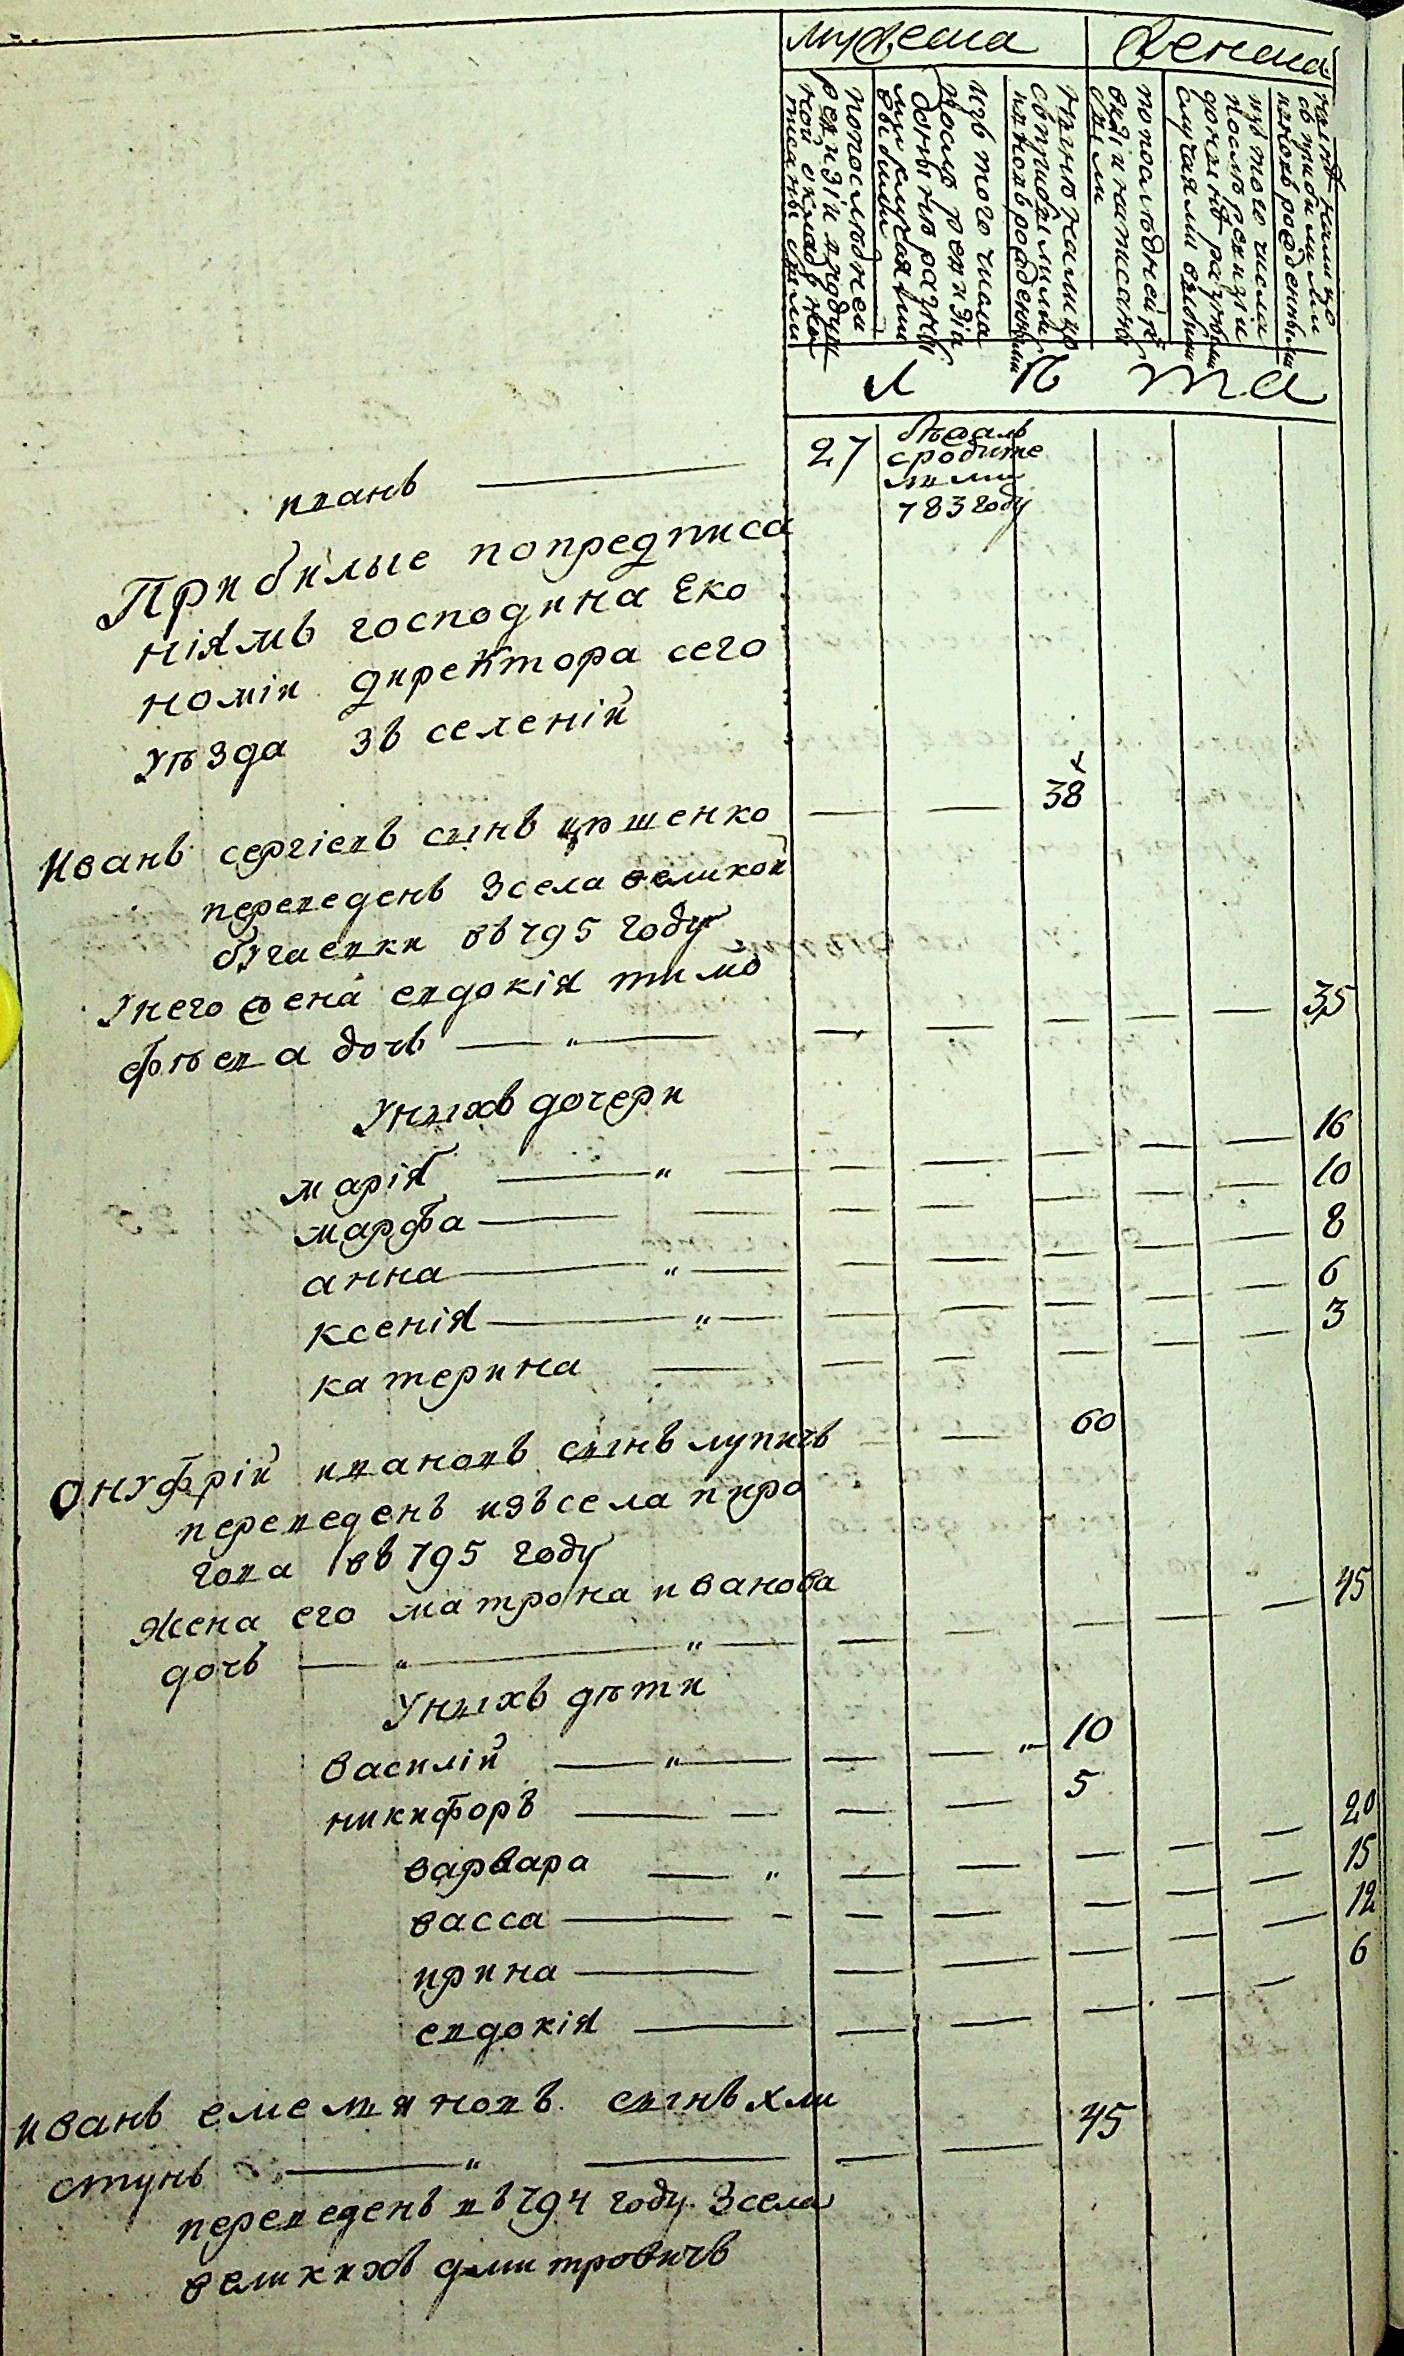 мужеска женска
попоследнеи
ревизіи вподуш
ной окладъ на
писаны были
изъ того числа
после ревизіи
донынѣ разны
ми случаями
выбыли
нынѣ налицо
сприбылыми
ивновь рожденными
попоследней ре
визіи написаны
были
изъ того числа
после ревизіи
донынѣ разными
случаями выбыли
нынѣ налицо
съ прибылими
ивновь рожденными
л ѣ та
иванъ 27 бежалъ
сродите
лями
783 году
Прибилые попредписа
ніямъ господина еко
номіи директора сего
уѣзда зъ селеній
Иванъ сергіевъ сынъ ярошенко 38
переведенъ зсела великой
бугаевки въ 795 году
Унего жена евдокія тимо
фѣева дочъ 35
Унихъ дочери
марія 16
марфа 10
анна 8
ксенія 6
катерина 3
Онуфрій ивановъ сынъ лупичъ 60
переведенъ изъ села пиро
гова въ 795 году
Жена его матрона иванова
дочъ 45
Унихъ дѣти
василій 10
никифоръ 5
варвара 20
васса 15
ирина 12
евдокія 6
иванъ емеляновъ сынъ хли
стунъ 45
переведенъ въ 794 году зсела
великихъ дмитровичъ